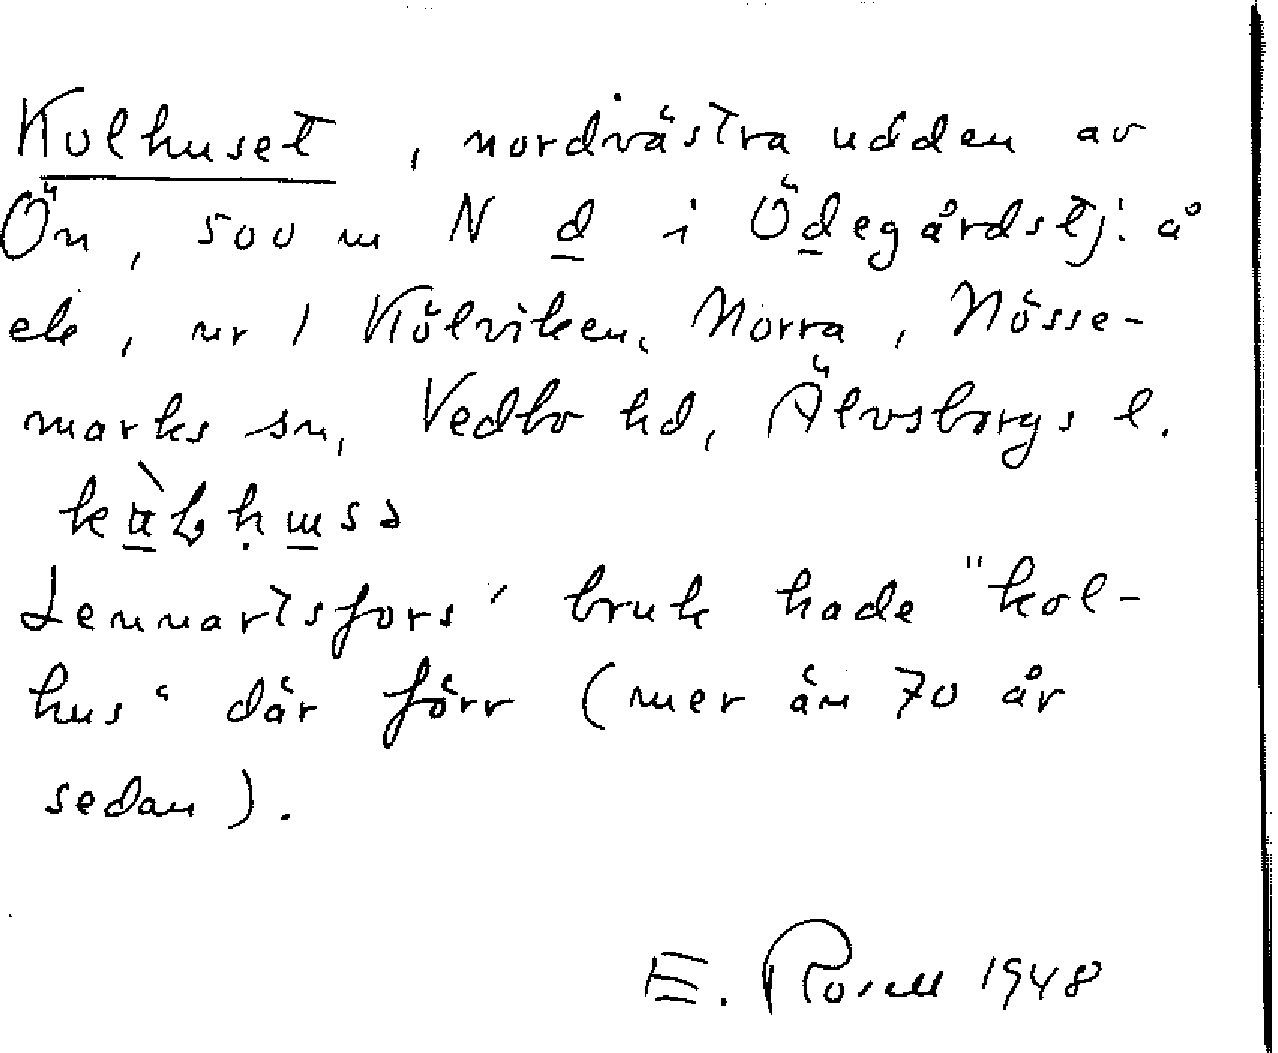 Kolhuset, nordvästra udden av
Ön, 500 m N d i Ödegårdstj: å
ek, nr 1 Kölviken, Norra, Nösse-
marks sn, Vedbo hd, Älvsborgs l.
Lennartsfors' bruk hade "kol-
hus" där förr (mer än 70 år
sedan).
E. Rosell 1948